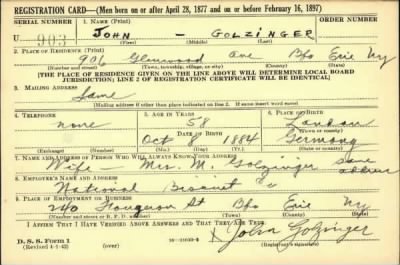 REGISTRATION CARD—(Men born on or after April 28, 1877 and on or before February 16, 1897)
SERIAL NUMBER 1. NAME (Print) ORDER NUMBER
U 903 JOHN – GOLZINGER
(First) (Middle) (Last)
2. PLACE OF RESIDENCE (Print)
906 Glenwood Ave Bfo Erie Ny
(Number and street) (Town, township, village, or city) (County) (State)
[THE PLACE OF RESIDENCE GIVEN ON THE LINE ABOVE WILL DETERMINE LOCAL BOARD
JURISDICTION; LINE 2 OF REGISTRATION CERTIFICATE WILL BE IDENTICAL]
3. MAILING ADDRESS
Same
(Mailing address if other than place indicated on line 2. If same insert word same)
4. TELEPHONE 5. AGE IN YEARS 6. PLACE OF BIRTH
none 58 Landau
DATE OF BIRTH (Town or county)
Oct 8 1884 Germany
(Exchange) (Number) (Mo.) (Day) (Yr.) (State or country)
7. NAME AND ADDRESS OF PERSON WHO WILL ALWAYS KNOW YOUR ADDRESS
Wife Mrs. M. Golzinger same address
8. EMPLOYER'S NAME AND ADDRESS
National Biscuit Co
9. PLACE OF EMPLOYMENT OR BUSINESS
240 St Bfo Erie Ny
(Number and street or R. F. D. number) (Town) (County) (State)
I AFFIRM THAT I HAVE VERIFIED ABOVE ANSWERS AND THAT THEY ARE TRUE.
D. S. S. Form 1
(Revised 4-1-42) (over) 16—21630-2 X John Golzinger
(Registrant's signature)